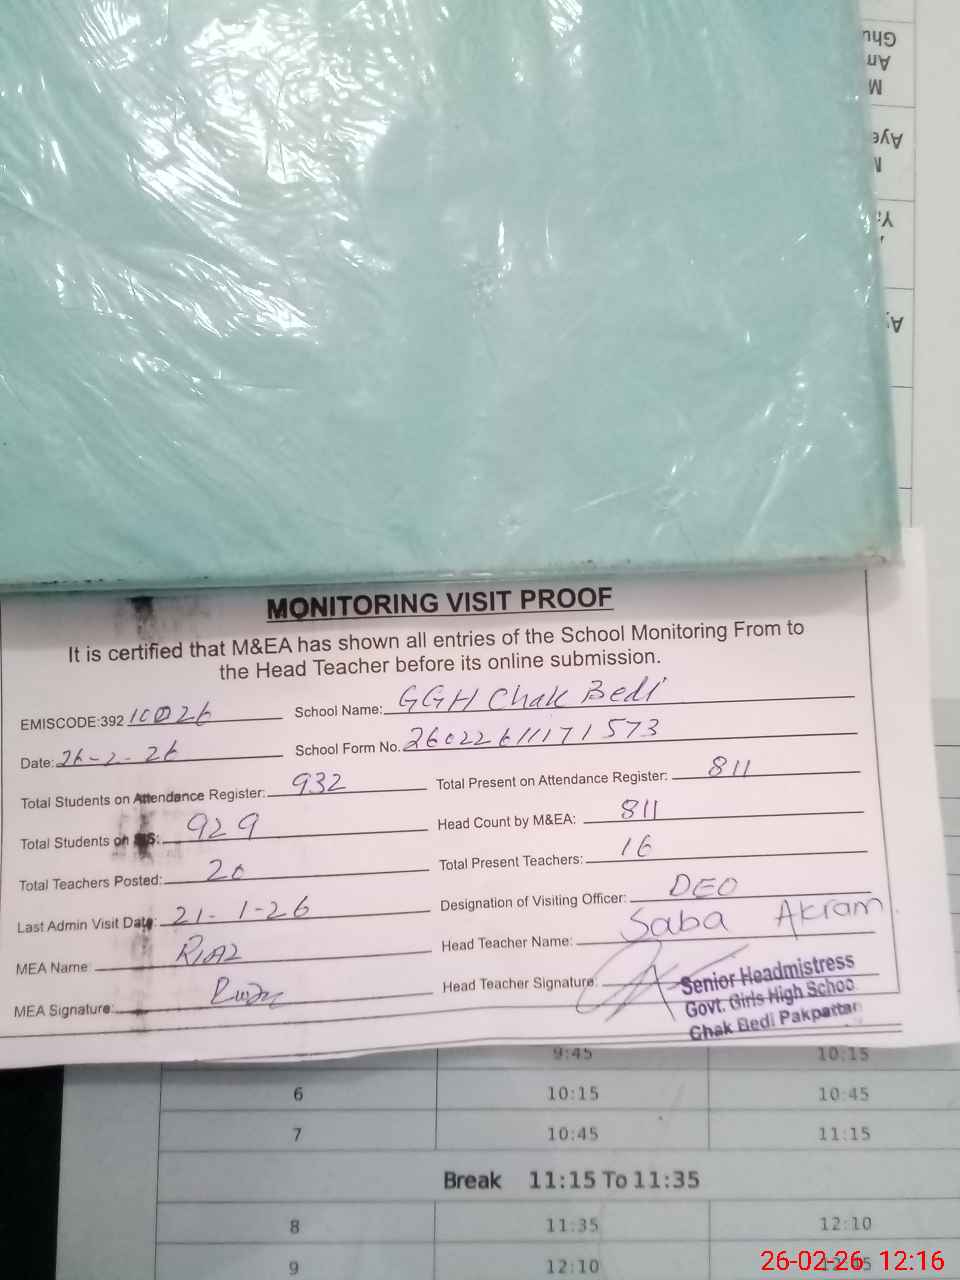 MONITORING VISIT PROOF
It is certified that M&EA has shown all entries of the School Monitoring From to
the Head Teacher before its online submission.
EMISCODE:392 10026 School Name: GGH Chak Bedi
Date: 26-2-26 School Form No. 260226111171573
Total Students on Attendance Register: 932 Total Present on Attendance Register: 811
Total Students on SIS: 929 Head Count by M&EA: 811
Total Teachers Posted: 20 Total Present Teachers: 16
Last Admin Visit Date: 21-1-26 Designation of Visiting Officer: DEO
MEA Name: RIAZ Head Teacher Name: Saba Akram
MEA Signature: Head Teacher Signature:
Senior Headmistress
Govt. Girls High School
Chak Bedi Pakpattan
9:45 10:15
6 10:15 10:45
7 10:45 11:15
Break 11:15 To 11:35
8 11:35 12:10
9 12:10
26-02-26 12:16